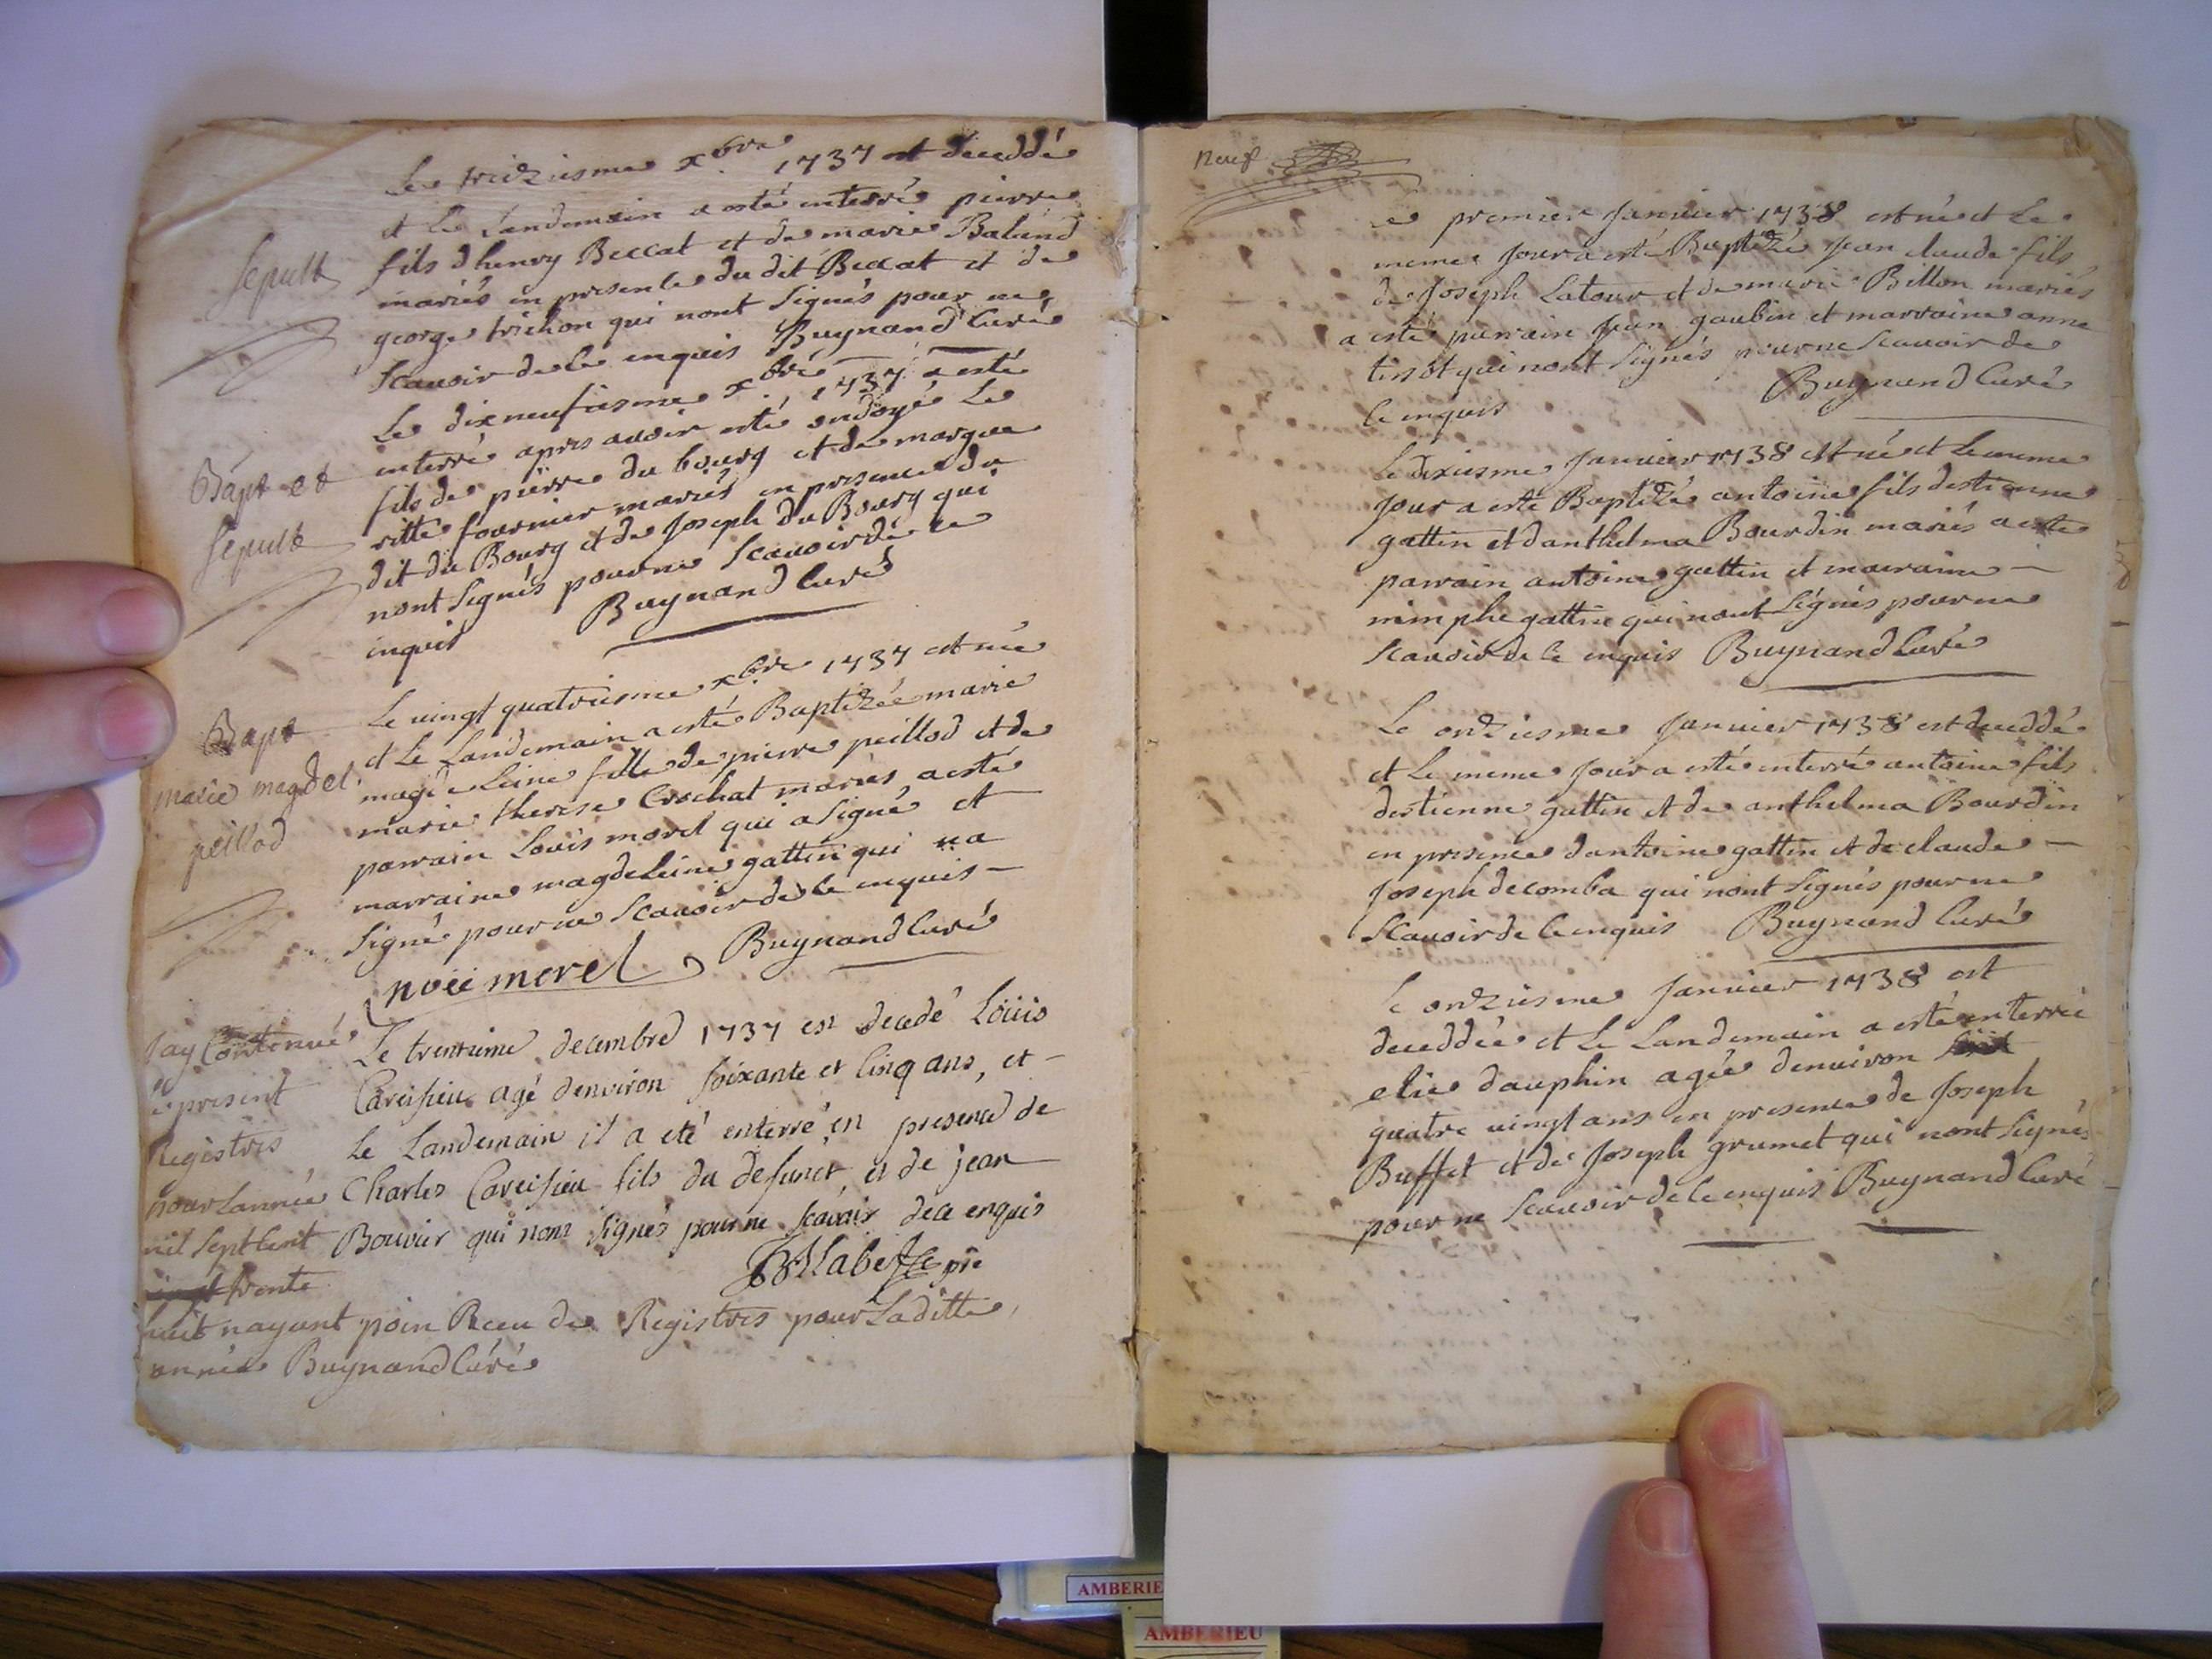 Le treiziesme xbre 1737 est deceddé
et le Landemain a esté enterré pierre
Sepult
fils dhenry Beccat et de marie Baland
mariés en presence du dit Beccat et de
george trichon qui nont signés pour ne
scauoir de ce enquis Buynand Curé
Le dixneufiesme xbre 1737 a esté
enterré apres auoir esté ondoyé Le
Bapt et
Sepult
fils de pierre du bourg et de margue
ritte fournier mariés en presence du
dit du Bourg et de Joseph du Bourg qui
nont signés pour ne scauoir de ce
enquis Buynand Curé
Le uingt quatriesme xbre 1737 est née
Bapt
marie magdel
peillod
et Le Landemain a esté Baptizée marie
magdeleine fille de pierre peillod et de
marie therese Crochat mariés, a esté
parrain Louis morel qui a signé et
marraine magdeleine gattin qui na
signé pour ne scauoir de ce enquis
morel Buynand Curé
Jay Continué
le present
Registres
pour Lannée
mil sept cent
trente
huit nayant poin Receu de Registres pour Laditte
année Buynand Curé
Le trentieme decembre 1737 est decedé Loüis
Careisieu agé denviron soixante et cinq ans, et
Le Landemain il a eté enterré en presence de
Charles Careisieu fils du defunct, et de jean
Bouvier qui nont signés pour ne scavoir de ce enquis
Labesse pre
neuf
e premier Januier 1738 est né et Le
meme Jour a esté Baptizé Jean claude fils
de Joseph Latour et de marie Billon mariés
a esté parrain Jean goubin et marraine anne
tissot qui nont signés pour ne scauoir de
ce enquis Buynand Curé
Le dixiesme Januier 1738 est né et le meme
Jour a esté Baptizé antoine fils destienne
gattin et danthelma Bourdin mariés a esté
parrain antoine gattin et marraine
nimphe gattin qui nont signés pour ne
scauoir de ce enquis Buynand Curé
Le onziesme Januier 1738 est deceddé
et Le meme Jour a esté enterré antoine fils
destienne gattin et de anthelma Bourdin
en presence dantoine gattin et de claude
Joseph decomba qui nont signés pour ne
scauoir de ce enquis Buynand Curé
Le onziesme Januier 1738 est
deceddée et Le Landemain a esté enterrée
elie dauphin agée denuiron
quatre uingt ans en presence de Joseph
Buffet et de Joseph grumet qui nont signés
pour ne scauoir de ce enquis Buynand Curé
AMBERIE
AMBERIEU